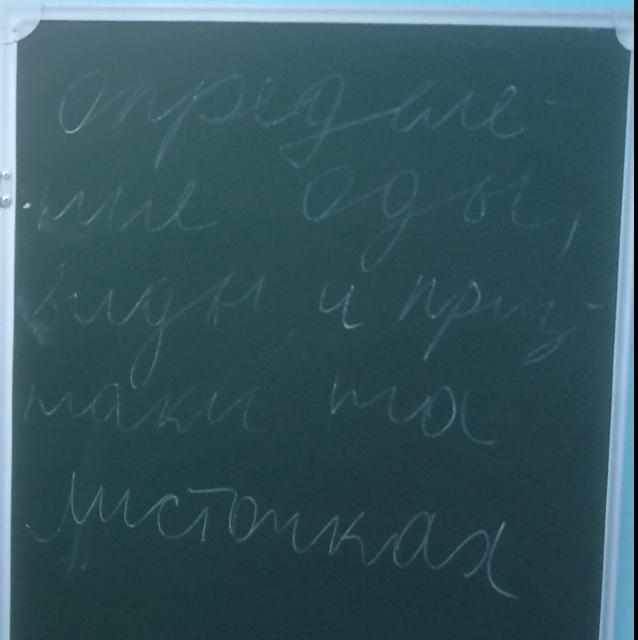 определе-
ние оды,
виды и приз-
наки на
листочках